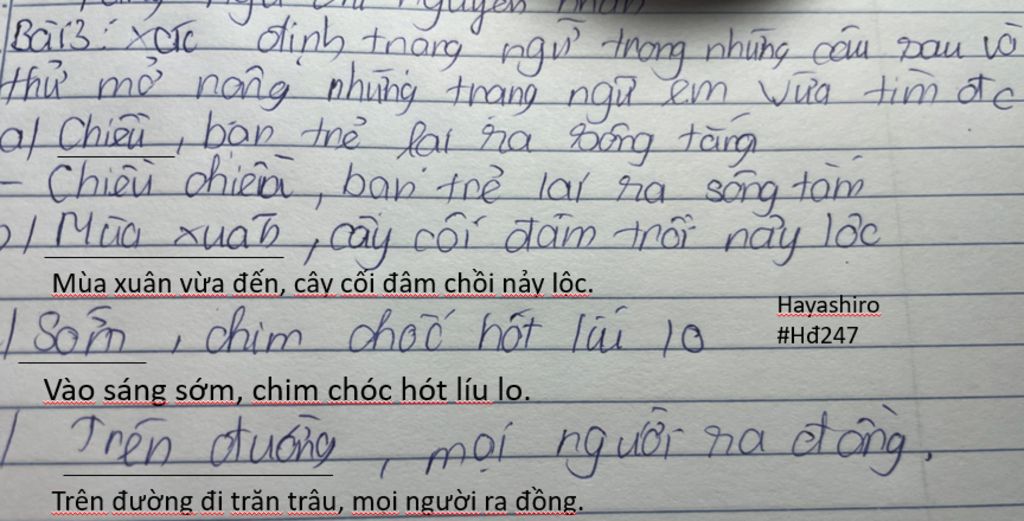 Bài 3: xác định trạng ngữ trong những câu sau và
thử mở rộng những trạng ngữ em vừa tìm đc
a/ Chiều, bọn trẻ lại ra sông tắm
- Chiều chiều, bọn trẻ lại ra sông tắm
b/ Mùa xuân, cây cối đâm trồi nảy lộc
Mùa xuân vừa đến, cây cối đâm chồi nảy lộc.
Hayashiro
#Hđ247
/ Sớm, chim chóc hót líu lo
Vào sáng sớm, chim chóc hót líu lo.
/ Trên đường, mọi người ra đồng.
Trên đường đi trăn trâu, mọi người ra đồng.